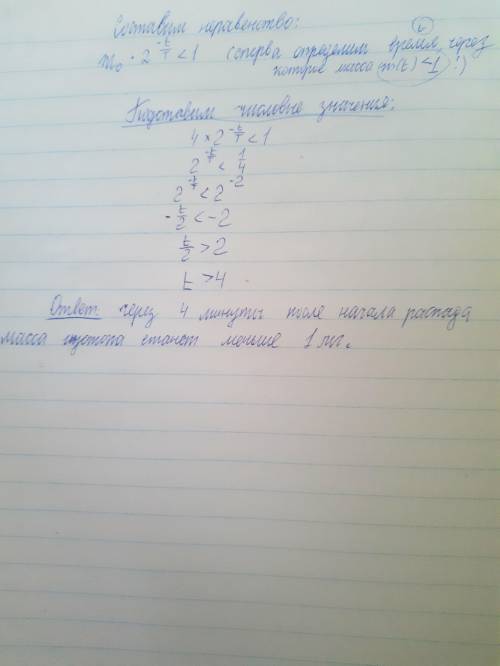 Составим неравенство:
m₀ · 2^(-t/T) < 1 (сперва определим время, через
которое масса m(t) < 1!)
Подставим числовые значения:
4 × 2^(-t/T) < 1
2^(-t/T) < 1/4
2^(-t/T) < 2^(-2)
-t/2 < -2
t/2 > 2
t > 4
Ответ: через 4 минуты после начала распада
масса изотопа станет меньше 1 мг.